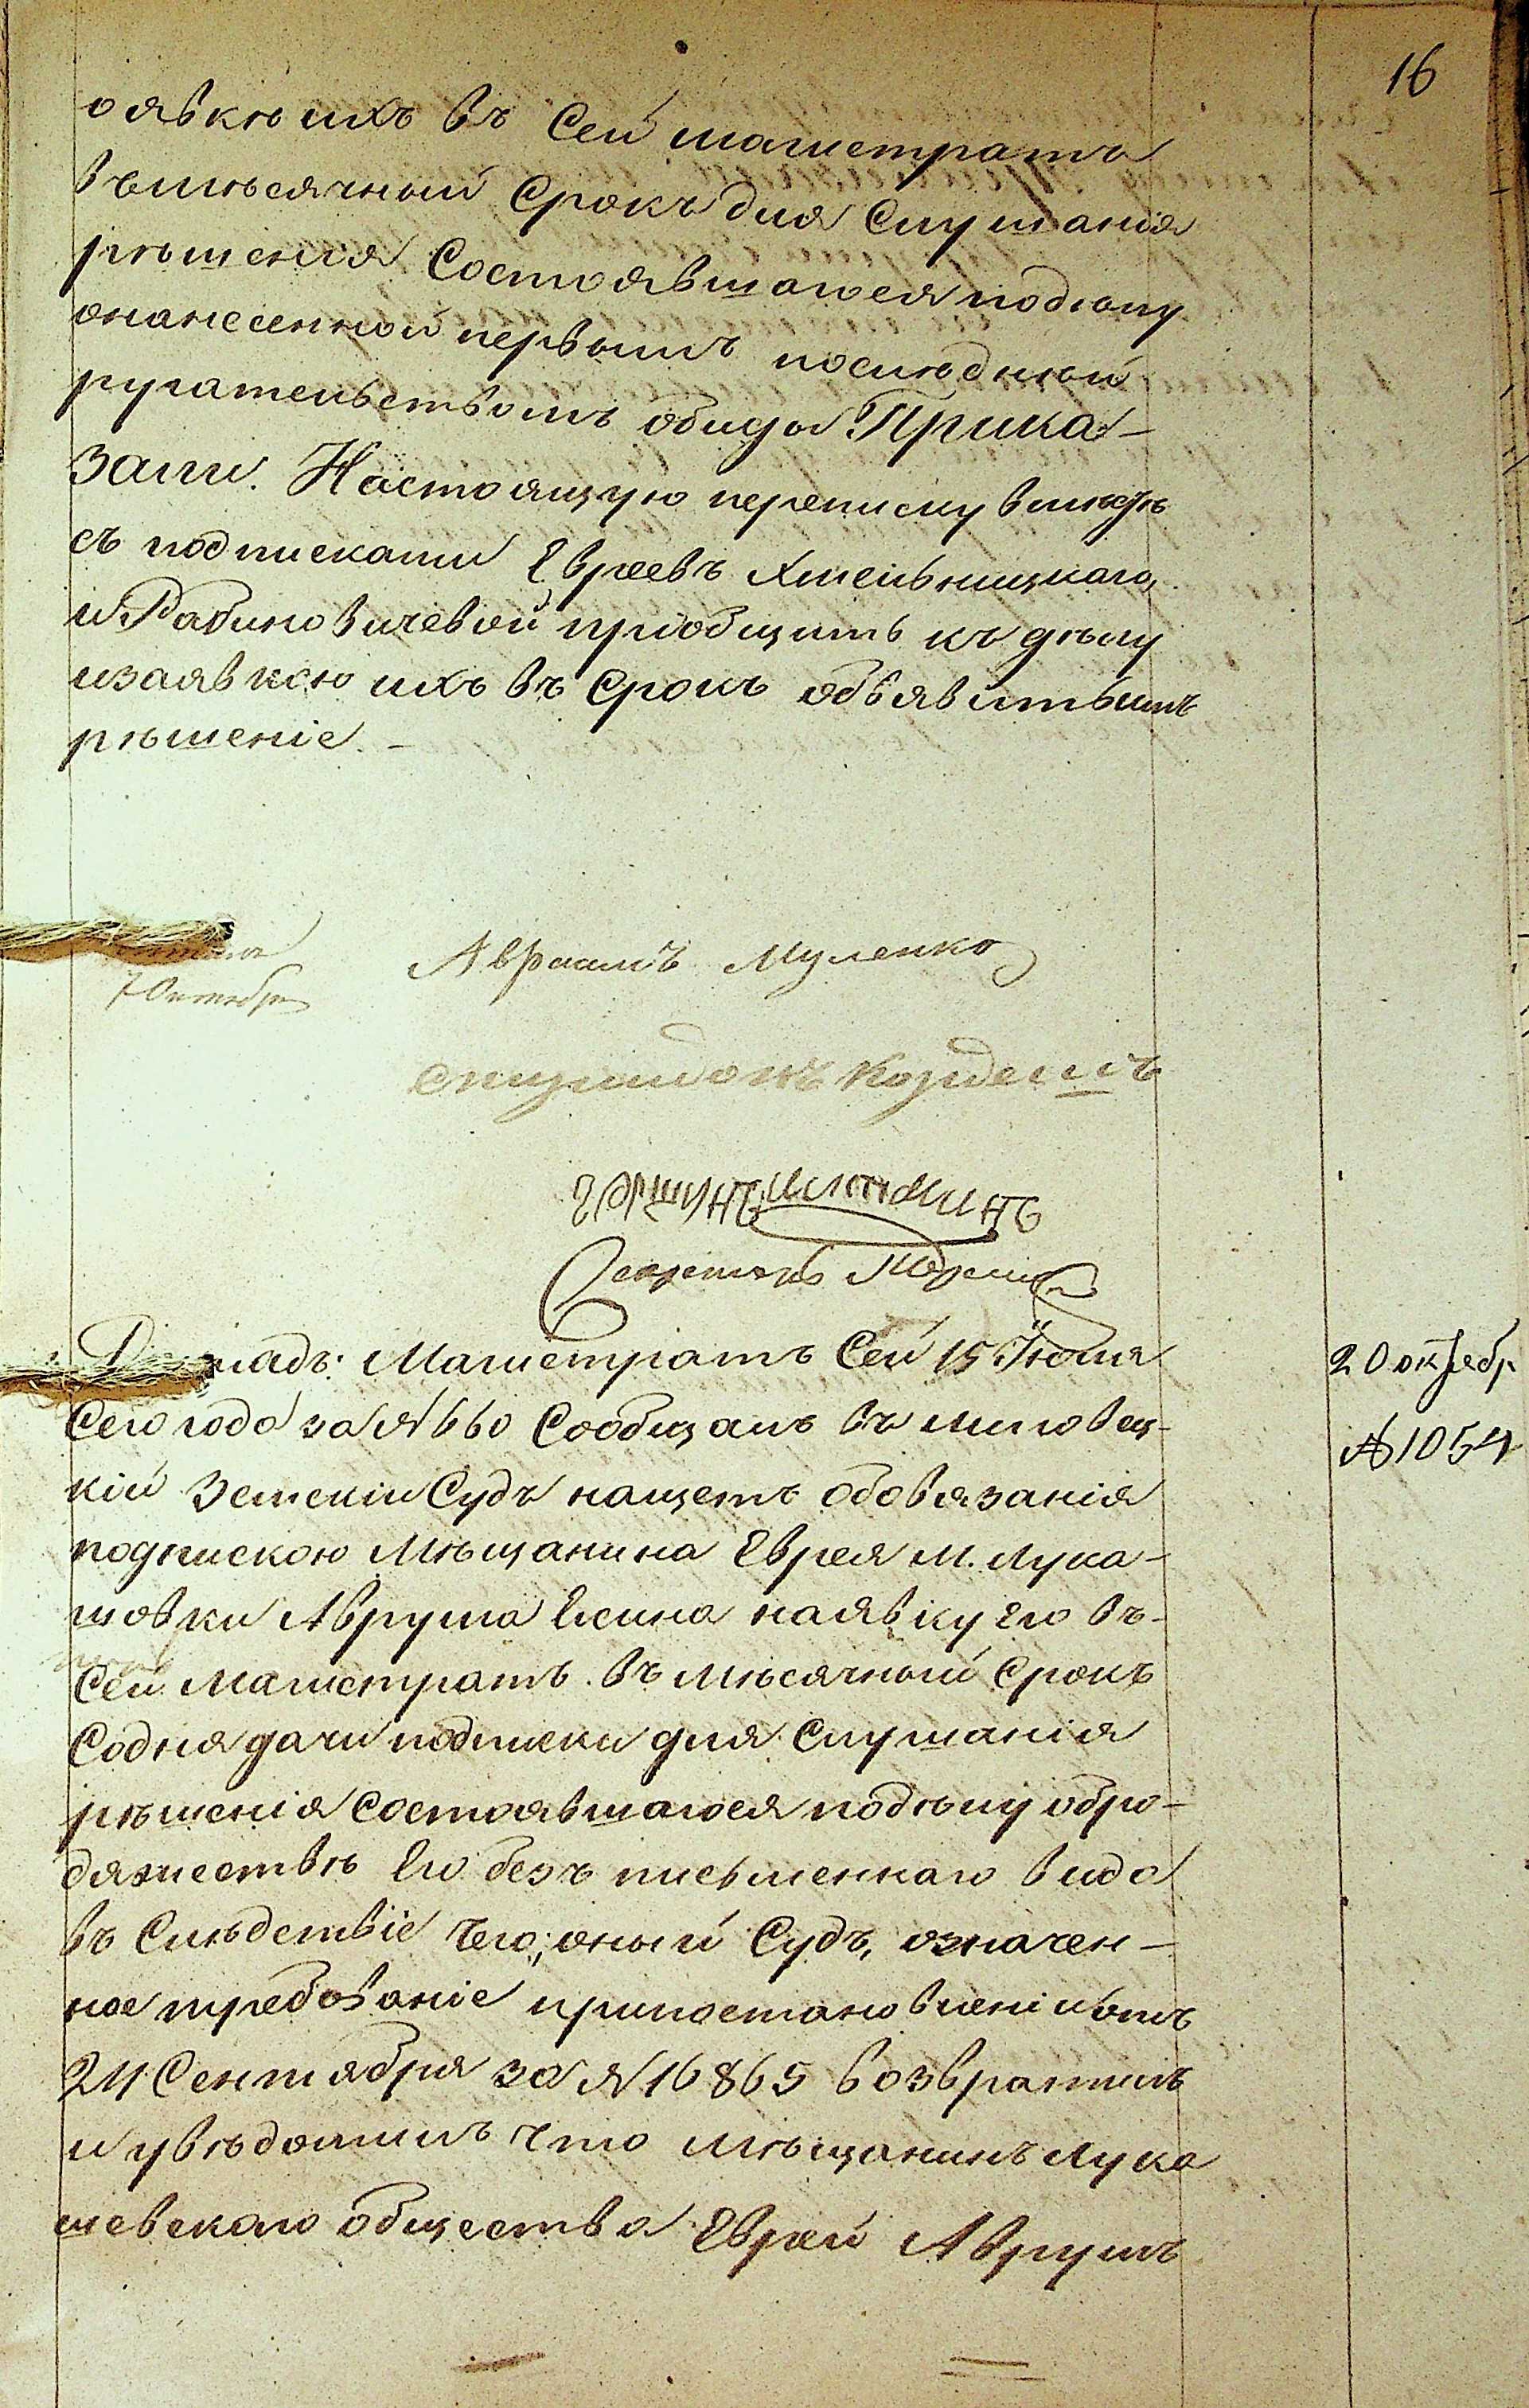 16
о явкѣ ихъ въ Сей магистратъ
въ мѣсячный Срокъ для Слушанія
рѣшенія Состоявшагося подѣлу
онанесенной первымъ последней
ругательствомъ обиды Прика-
зали. Настоящую переписку вмѣсте
съ подписками Евреевъ Хмельницкаго,
и Рабиновичевой пріобщить къ дѣлу
изаявкою ихъ въ Срокъ объявить имъ
рѣшеніе. -
7 Октября
Авраамъ Муленко
Секретарь
Докладъ: Магистратъ Сей 15 Іюля
20 октебр
Сего года за № 660 Сообщалъ въ Липовец-
№ 1054
кій Земскій Судъ нащетъ обовязанія
подпискою Мѣщанина Еврея М. Лука-
шовки Аврума на явку Его въ-
Сей Магистратъ въ мѣсячный Срокъ
Содня дачи подписки для Слушанія
рѣшенія состоявшагося подѣлу обро-
дяжествѣ Его безъ письменнаго вида
въ Слѣдствіе чего, оный Судъ, означен-
ное требованіе припостановленіи отъ
24 Сентября за № 16865 возвратилъ
и увѣдомилъ что мѣщанинъ Лука
шевскаго общества Еврей Аврумъ